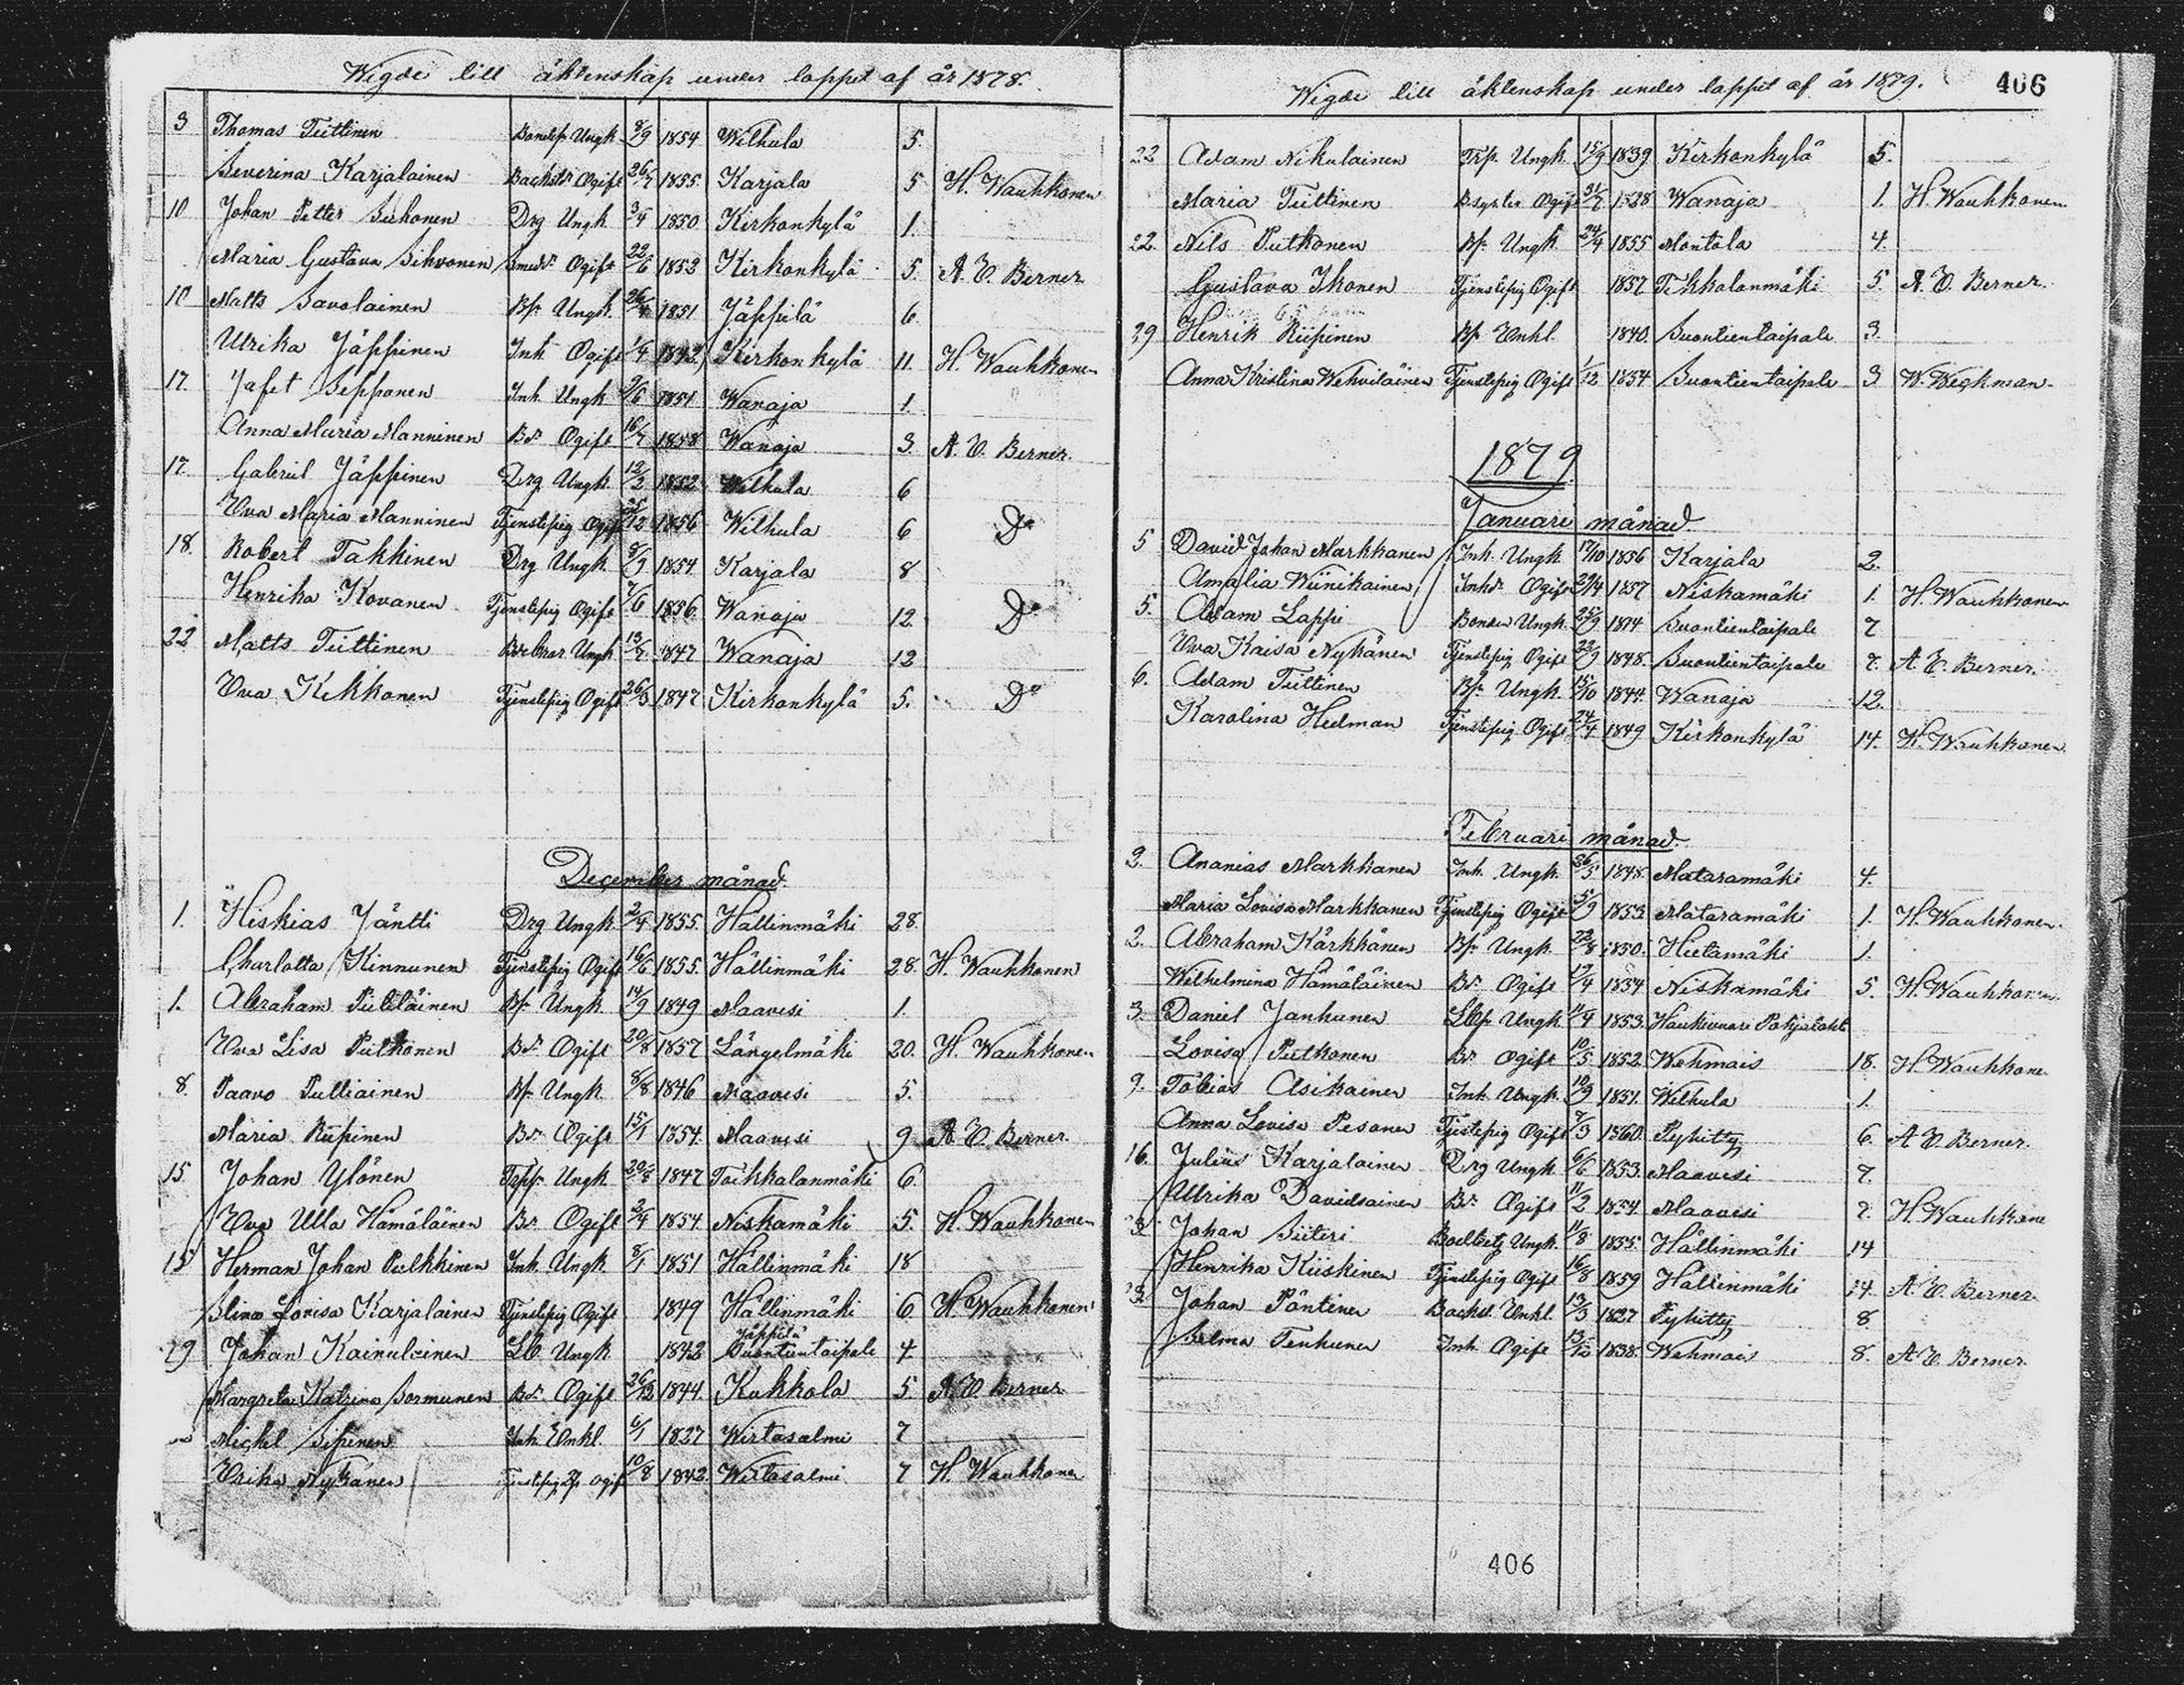 Wigde till äktenskap under loppet af år 1878.
3 Thomas Tiittinen Bondep Ungk 8/9 1854 Wilhula 5.
Severina Karjalainen Backstr Ogift 26/7 1855. Karjala 5 H. Wauhkonen
10 Johan Petter Suhonen Drg Ungk 3/4 1850 Kirkonkylä 1.
Maria Gustava Sihvonen Smedr Ogift 22/6 1853 Kirkonkylä 5. A. E. Berner
10 Matts Savolainen Bp. Ungk. 1851 Jäppilä 6
Ulrika Jäppinen Inh Ogift 1/4 1842 Kirkonkylä 11. H. Wauhkonen
17. Jafet Sepponen Inh. Ungk 9/6 1851 Wanaja 1.
Anna Maria Manninen Bdr Ogift 16/7 1858 Wanaja 3. A. E. Berner.
17. Gabriel Jäppinen Drg Ungk. 12/2 1852 Wilhula 6
Eva Maria Manninen Tjenstepig Ogift 1856 Wilhula 6 Do
18. Robert Takkinen Drg Ungk. 8/9 1854 Karjala 8
Henrika Kovanen Tjenstepig Ogift 7/6 1856. Wanaja 12. Do
22 Matts Tiittinen Ungk 13/7 1847 Wanaja 12
Eva Kekkonen Tjenstepig Ogift 26/3 1847 Kirkonkylä 5. Do
December månad.
1. Hiskias Jäntti Drg Ungk 2/4 1855. Hällinmäki 28.
Charlotta Kinnunen Tjenstepig Ogift 16/6 1855. Hällinmäki 28. H. Wauhkonen
1. Abraham Bp. Ungk. 14/9 1849 Maavesi 1.
Eva Lisa Putkonen Bdr Ogift 20/8 1857 Längelmäki 20. H. Wauhkonen
8. Paavo Pulliainen Bp. Ungk. 8/8 1846 Maavesi 5.
Maria Riipinen Bdr Ogift 15/1 1854. Maavesi 9 A. E. Berner.
15. Johan Ylönen Trpp. Ungk 1847 Toikkalanmäki 6.
Eva Ulla Hämäläinen Bdr Ogift 2/4 1854. Niskamäki 5. H. Wauhkonen
15 Herman Johan Pulkkinen Inh. Ungk. 8/1 1851 Hällinmäki 18
Stina Lovisa Karjalainen Tjenstepig Ogift 1849 Hällinmäki 6. H. Wauhkonen
Jäppilä
29 Johan Kainulainen Lb. Ungk 1842 Suontientaipale 4.
Margreta Katrina Sormunen Bdr Ogift 26/12 1844. Kukkola 5 A. E. Berner
Michel Sipinen Inh. Enkl. 6/1 1827 Wirtasalmi 7
Erika Nykänen ogift 10/8 1842. Wirtasalmi 7 H. Wauhkonen
Wigde till äktenskap under loppet af år 1879. 406
22 Adam Nikulainen Trp. Ungk. 15/9 1839 Kirkonkylä 5.
Maria Tiittinen Bsyster Ogift 31/7 1828 Wanaja 1. H. Wauhkonen
22. Nils Putkonen Bp. Ungk 24/4 1855 Montola 4.
Gustava Ikonen Tjenstepig Ogift 1857 Tikkalanmäki 5. A. E. Berner.
29 Henrik Riipinen Bp Enkl. 1840. Suontientaipale 3.
Anna Kristina Wehviläinen Tjenstepig Ogift 1/12 1854 Suontientaipale 3 W. Weckman.
1879
Januari månad.
5 David Johan Markkanen Inh. Ungk 17/10 1856 Karjala 2.
Amalia Wiinikainen Inhdr Ogift 29/4 1857 Niskamäki 1. H. Wauhkonen
5. Adam Lappi Bonden Ungk. 25/9 1814 Suontientaipale 7
Eva Kaisa Nykänen Tjenstepig Ogift 22/9 1848. Suontientaipale 7. A. E. Berner.
6. Adam Tiittinen Bp. Ungk. 15/10 1844. Wanaja 12.
Karolina Hedman Tjenstepig Ogift 24/4 1849 Kirkonkylä 14. H. Wauhkonen.
Februari månad.
2. Ananias Markkanen Inh. Ungk. 26/5 1848. Mataramäki 4.
Maria Lovisa Markkanen Tjenstepig Ogift 5/9 1853 Mataramäki 1. H. Wauhkonen.
2. Abraham Kärkkänen Bp. Ungk. 22/8 1850. Hietamäki 1.
Wilhelmina Hämäläinen Bdr Ogift 1854 Niskamäki 5. H. Wauhkonen.
3. Daniel Janhunen Lbp Ungk. 11/4 1853. Haukivuori Pohjalahti
Lovisa Putkonen Bdr Ogift 10/5 1852. Wehmais 18. H. Wauhkonen
9. Tobias Asikainen Inh. Ungk. 10/9 1851. Wilhula 1.
Anna Lovisa Pesonen Tjenstepig Ogift 7/3 1860. Pyhitty 6. A. E. Berner.
16. Julius Karjalainen Drg Ungk 6/6 1853. Maavesi 7.
Ulrika Davidsainen Bdr Ogift 11/2 1854. Maavesi 7. H. Wauhkone
Johan Siiteri Ungk. 11/8 1855. Hällinmäki 14
Henrika Kiiskinen Tjenstepig Ogift 16/8 1859 Hällinmäki 14. A. E. Berner.
Johan Pöntinen Backst. Enkl. 13/3 1827 Pyhitty 8
Selma Tenhunen Inh. Ogift 13/12 1838. Wehmais 8. A. E. Berner.
406